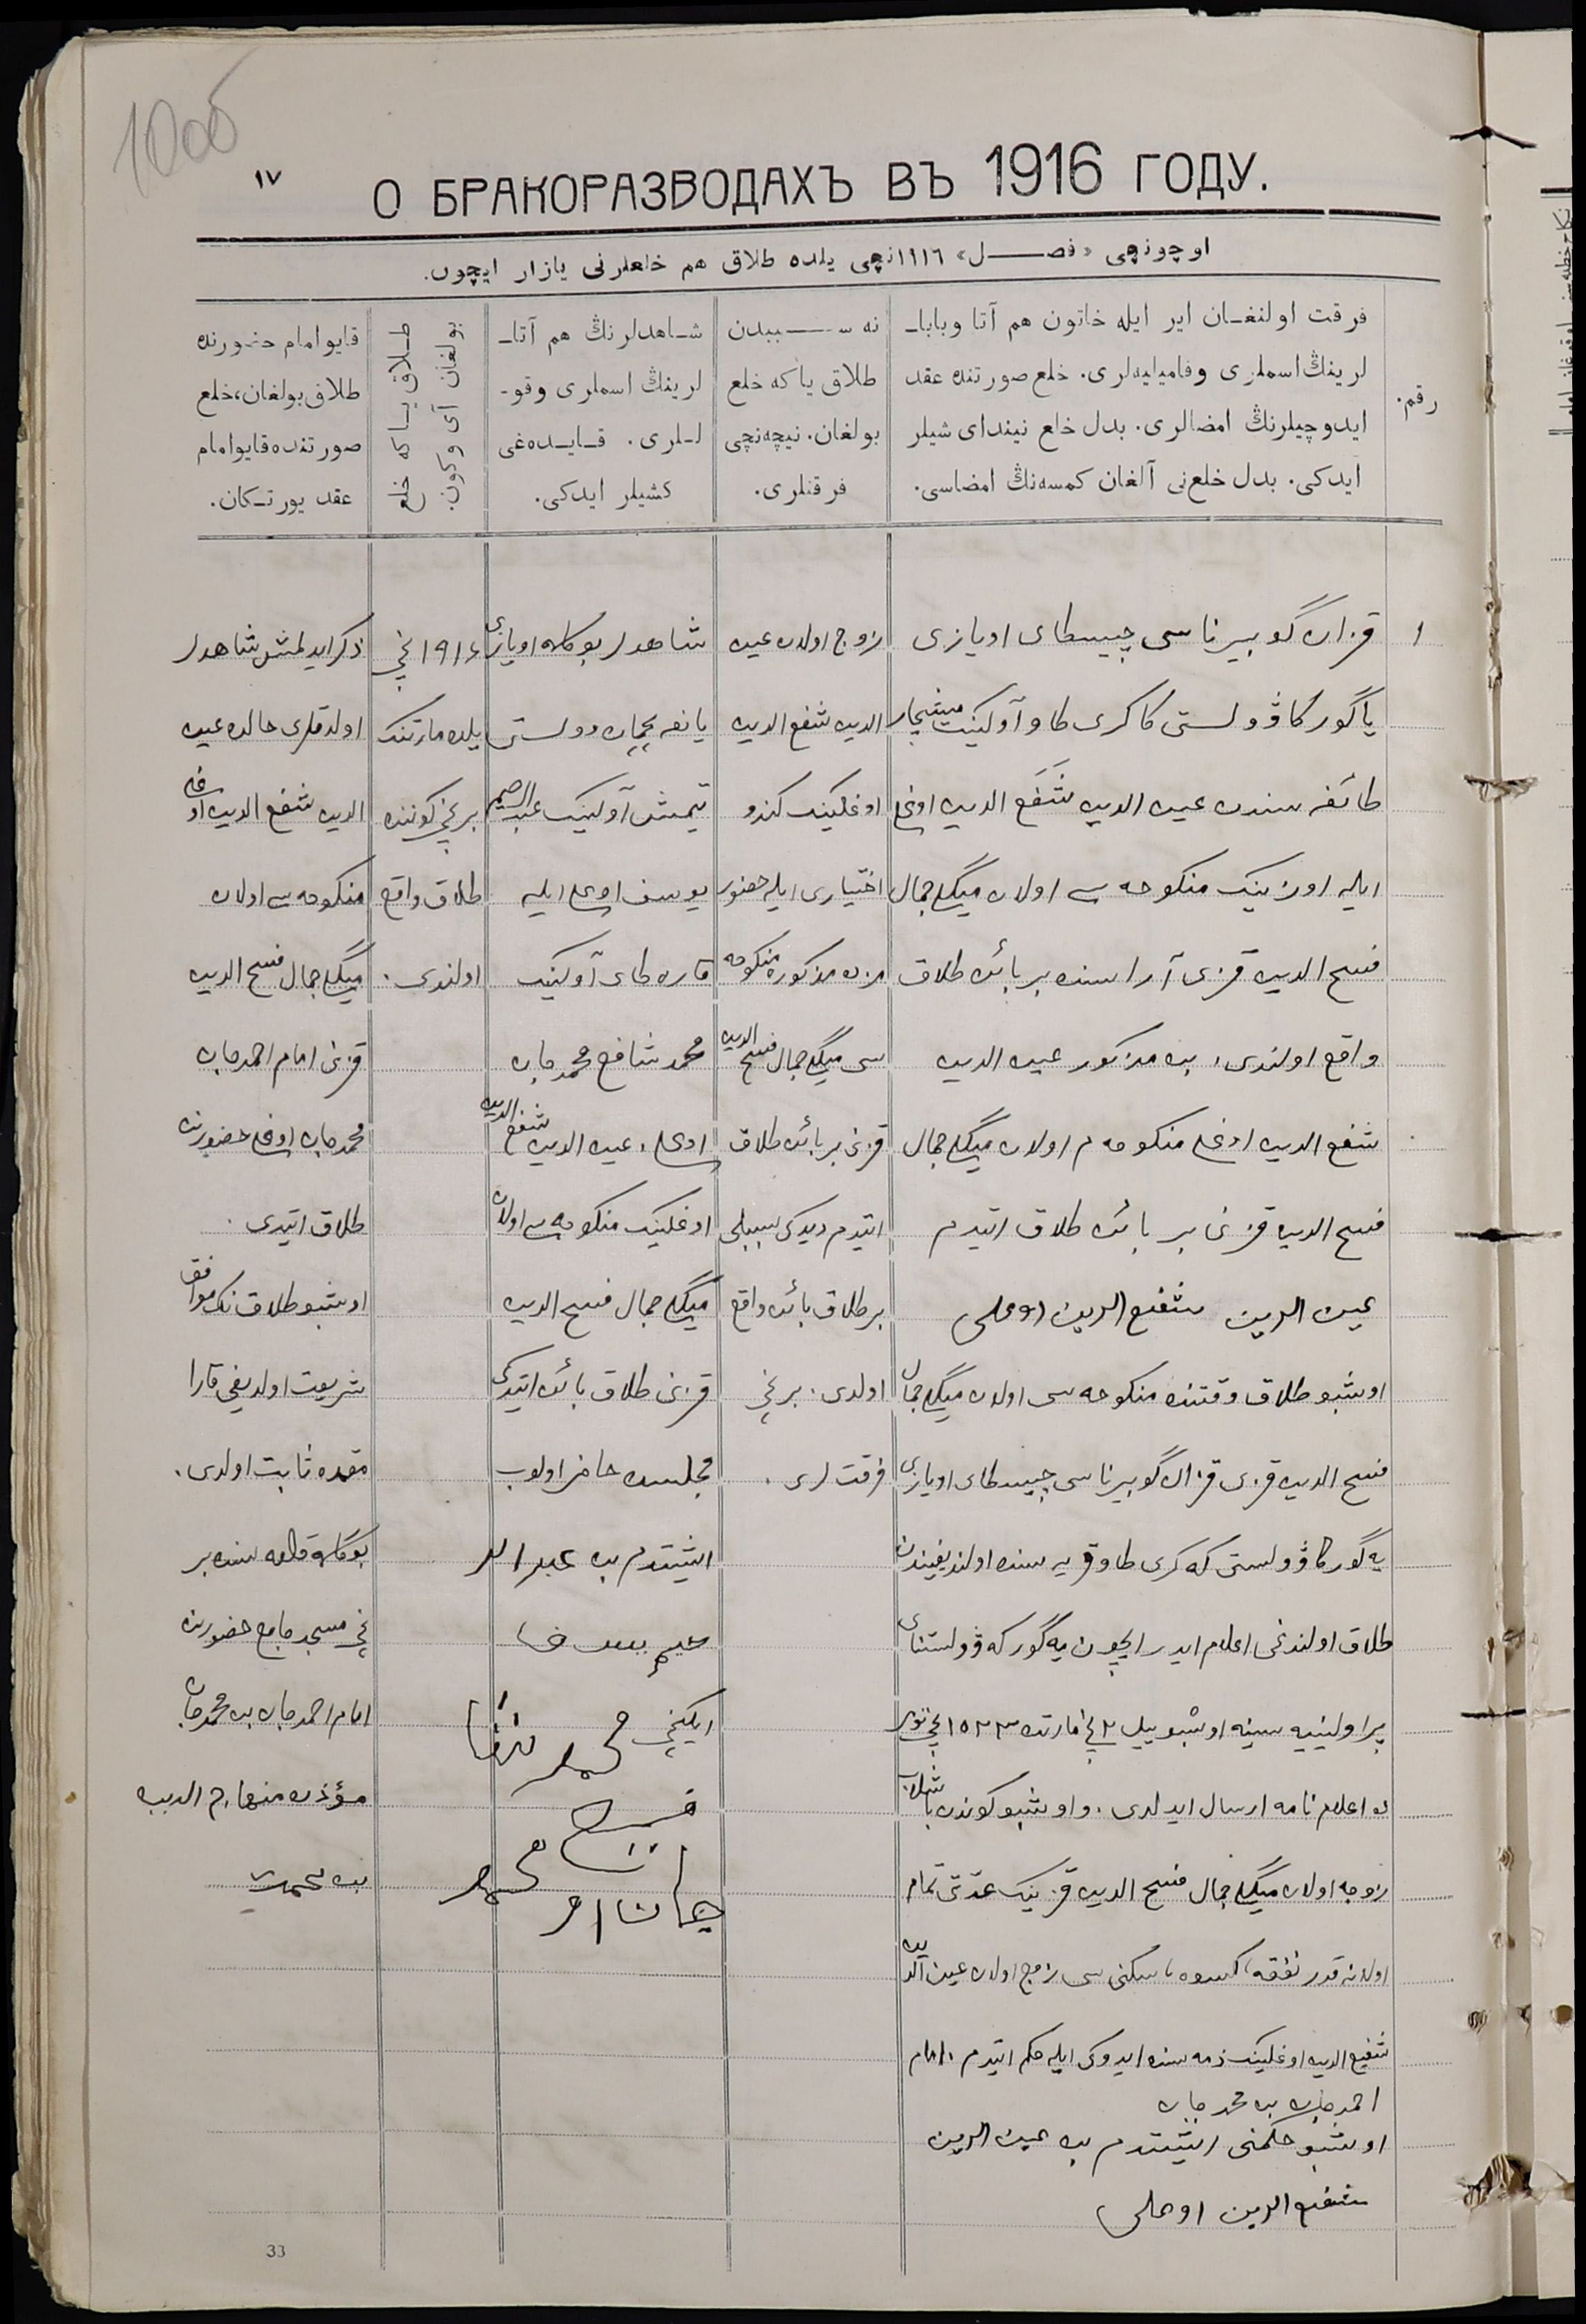 100об
١٧
О БРАКОРАЗВОДАХЪ ВЪ 1916 ГОДУ.
اوچونچی «فصـــل» ١٩١٦نچی یلده طلاق هم خلعلرنی یازار ایچون.
رقم.
فرقت اولنغـان ایر ایله خاتون هم آتا وباباـ
لرینڭ اسملری وفامیلیه‌لری. خلع صورتنده عقد
ایدوچیلرنڭ امضالری. بدل خلع نیندای شیلر
ایدکی. بدل خلع‌نی آلغان کمسه‌نڭ امضاسی.
نه ســـببدن
طلاق یا که خلع
بولغان. نیچه‌نچی
فرقتلری.
شـاهدلرنڭ هم آتاـ
لرینڭ اسملری وقوـ
لـلری. قـایـده‌غی
کشیلر ایدکی.
طـلاق یـا که خلع
بولغان آی وکون.
قایو امام حضورنده
طلاق بولغان، خلع
صورتنده قایو امام
عقد یورتـکان.
١
قزان گوبیرناسی چیسطای اویازی
یاگورکا ڤولستی کاکری طاو آولینیڭ میشچار
طائفه سندن عین الدین شفع الدین اوغلی
ایله اوزینیڭ منکوحه سی اولان میڭلی جمال
فسح الدین قزی آراسنده بر بائن طلاق
واقع اولندی، بن مذکور عین الدین
شفع الدین اوغلی منکوحه م اولان میڭلی جمال
فسح الدین قزنی بر بائن طلاق ایتدم
عین الدین شفیع الدین اوغلی
اوشبو طلاق وقتنده منکوحه سی اولان میڭلی جمال
فسح الدین قزی قزان گوبیرناسی چیسطای اویازی
یه گورکا ڤولستی که کری طاو قریه سنده اولندیغیندن
طلاق اولندغی اعلام ایدر ایچون یه گورکه ڤولستنای
پراولینییه سینه اوشبو ییل ٢ نچی مارتده ١٥٢٣ نچی نومر
ده اعلام نامه ارسال ایدلدی. واوشبو کوندن باشلاب
زوجه اولان میڭلی جمال فسح الدین قزینیڭ عدّتی تمام
اولانه قدر نفقه، کسوه، سکنی سی زوج اولان عین الدین
شفیع الدین اوغلینیڭ ذمه سنده ایدوکی ایله حکم ایتدم. امام
احمدجان بن محمدجان
اوشبو حکمنی ایشیتدم بن عین الدین
شفیع الدین اوغلی
زوج اولان عین
الدین شفع الدین
اوغلینیڭ کندو
اختیاری ایله حضور
مزده مذکوره منکوحه
سی میڭلی جمال فسح الدین
قزنی بر بائن طلاق
ایتدم دیدکی سببلی
بر طلاق بائن واقع
اولدی. برنچی
فرقت لری.
شاهدلر بوگلمه اویازی
یلانغه‌چمان وولستی
تیمش آولینیڭ عبدالرحیم
یوسف اوغلی ایله
قاره طای آولینیڭ
محمد شافع محمدجان
اوغلی، عین الدین شفع الدین
اوغلینیڭ منکوحه سی اولان
میڭلی جمال فسح الدین
قزنی طلاق بائن ایتدکی
مجلسده حاضر اولوب
ایشیتدم بن عبدالر
حیم یوسف
ایکنچی محمد شافع
محمدجان
١٩١٦ نچی
یلده مارتنڭ
برنچی کوننده
طلاق واقع
اولندی.
ذکر ایدلمش شاهدلر
اولدقلری حالده عین
الدین شفع الدین اوغلی
منکوحه سی اولان
میڭلی جمال فسح الدین
قزنی امام احمدجان
محمدجان اوغلی حضورنده
طلاق ایتدی.
اوشبو طلاق نڭ موافق
شریعت اولدیغی قارا
مقده ثابت اولدی.
بوگلمه قلعه سنده بر
نچی مسجد جامع حضورنده
امام احمدجان بن محمدجان
مؤذن منهاج الدین
بن محمد
33